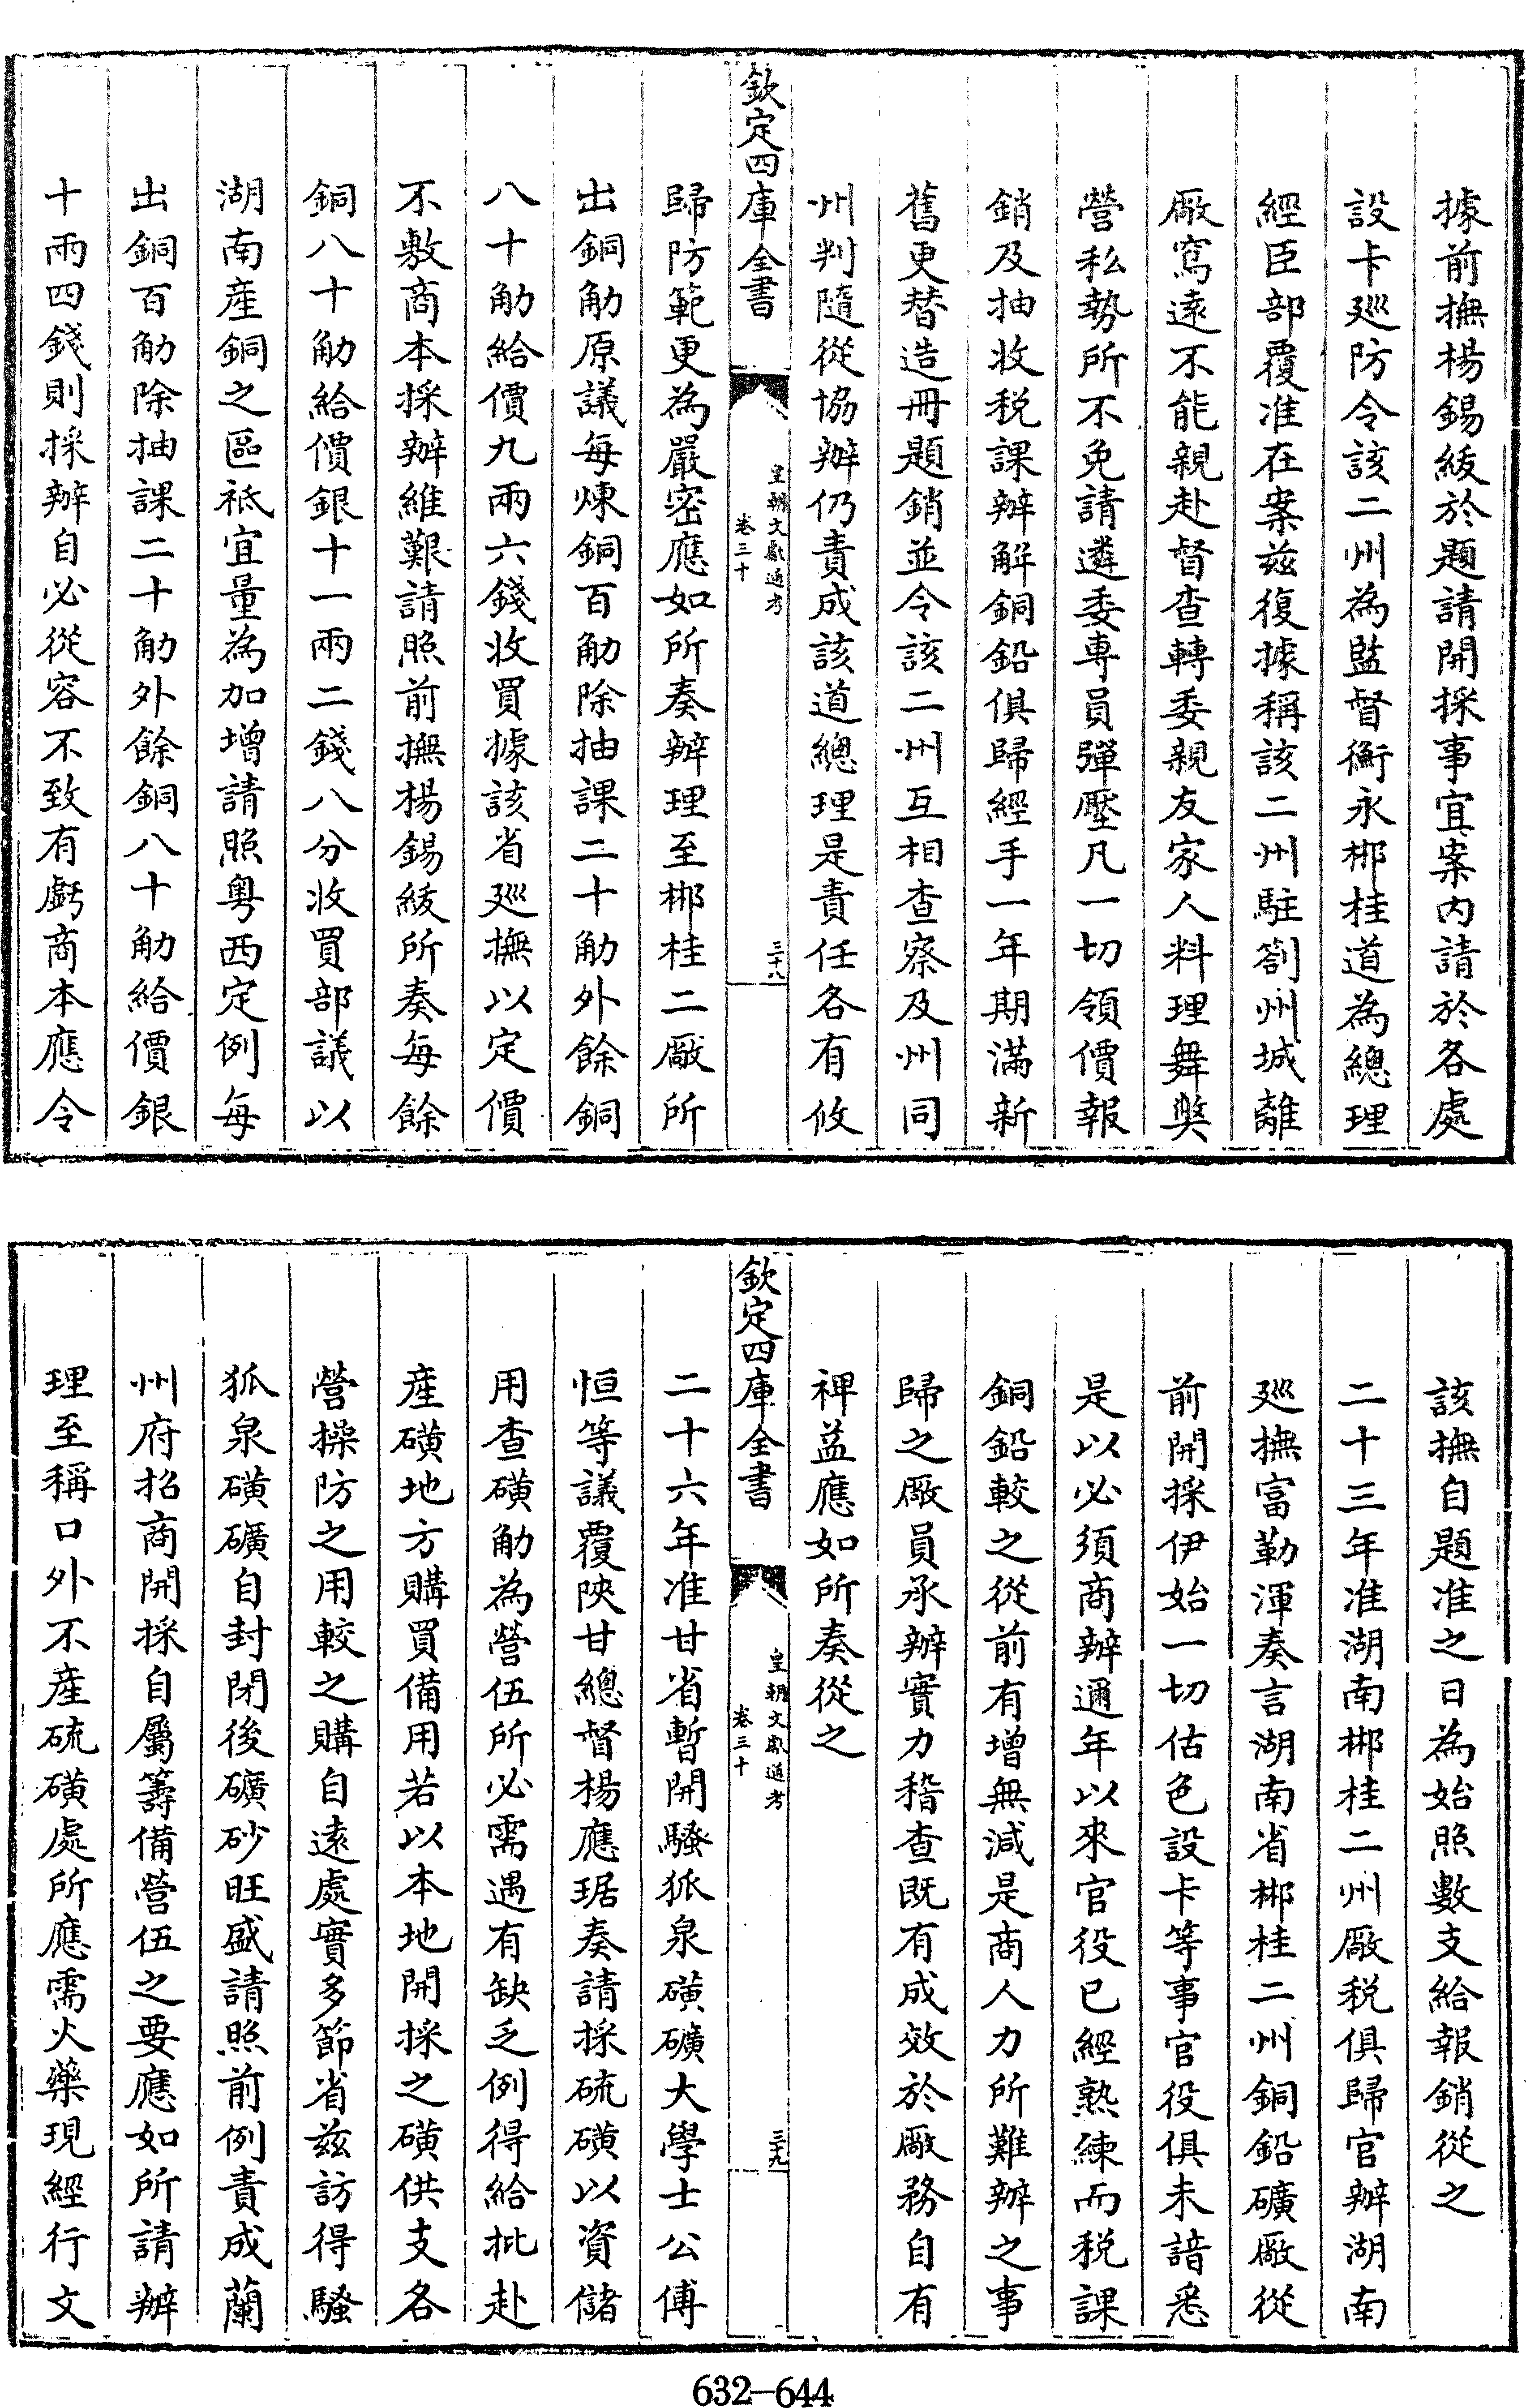 據前撫楊錫紱於題請開採事宜案内請於各處
設卡廵防令該二州為監督衡永郴桂道為總理
經臣部覆准在案兹復據稱該二州駐劄州城離
厰窵遠不能親赴督查轉委親友家人料理舞獘
營私勢所不免請遴委専員彈壓凡一切領價報
銷及抽收税課辦解銅鉛俱歸經手一年期滿新
舊更替造冊題銷並令該二州互相查察及州同
州判隨從協辦仍責成該道總理是責任各有攸
欽定四庫全書
皇朝文獻通考
卷三十
三十八
歸防範更為嚴密應如所奏辦理至郴桂二厰所
出銅觔原議每煉銅百觔除抽課二十觔外餘銅
八十觔給價九兩六錢收買據該省廵撫以定價
不敷商本採辦維艱請照前撫楊錫紱所奏每餘
銅八十觔給價銀十一兩二錢八分收買部議以
湖南産銅之區祗宜量為加增請照粤西定例每
出銅百觔除抽課二十觔外餘銅八十觔給價銀
十兩四錢則採辦自必從容不致有虧商本應令
該撫自題准之日為始照數支給報銷從之
二十三年准湖南郴桂二州厰税俱歸官辦湖南
廵撫富勒渾奏言湖南省郴桂二州銅鉛礦厰從
前開採伊始一切估色設卡等事官役俱未諳悉
是以必須商辦通年以來官役已經熟練而税課
銅鉛較之從前有增無減是商人力所難辦之事
歸之厰員承辦實力稽查既有成效於厰務自有
裨益應如所奏從之
欽定四庫全書
皇朝文獻通考
卷三十
三十九
二十六年准甘省暫開騷狐泉磺礦大學士公傅
恒等議覆陜甘總督楊應琚奏請採硫磺以資儲
用查磺觔為營伍所必需遇有缺乏例得給批赴
産磺地方購買備用若以本地開採之磺供支各
營操防之用較之購自遠處實多節省兹訪得騷
狐泉磺礦自封閉後礦砂旺盛請照前例責成蘭
州府招商開採自屬籌備營伍之要應如所請辦
理至稱口外不産硫磺處所應需火藥現經行文
632-644